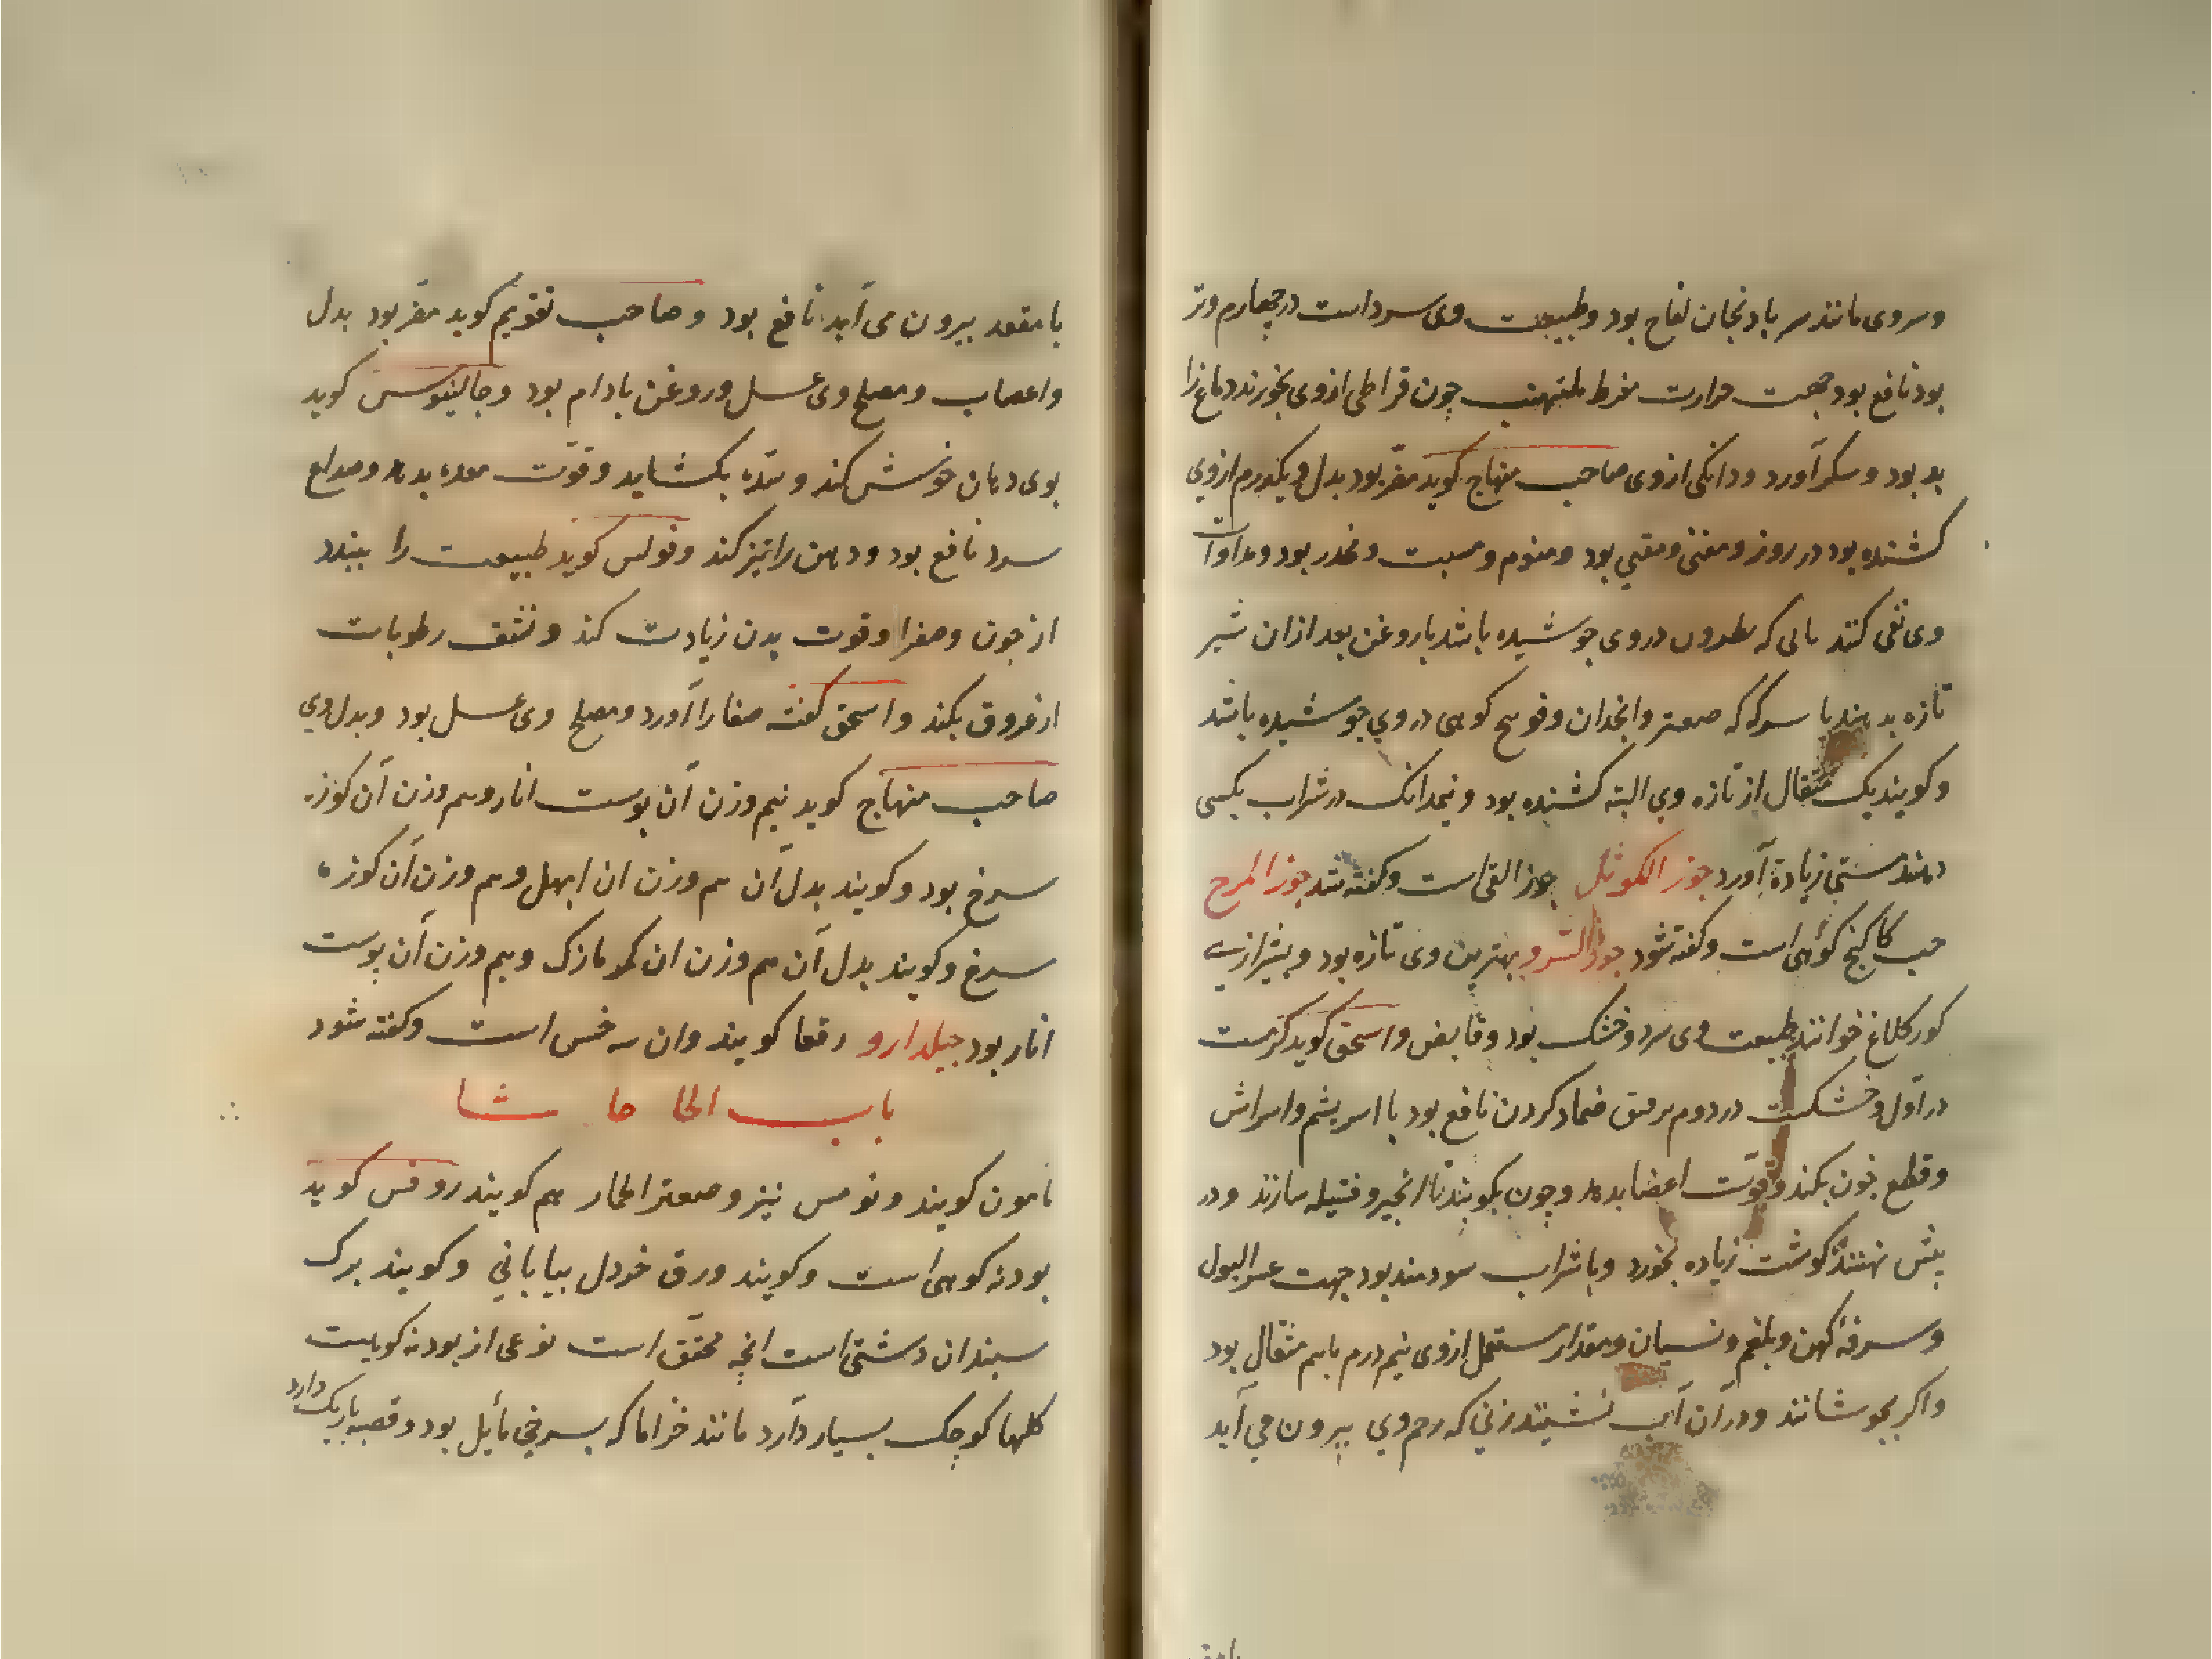 وسروی مانند سر بادنجان لفاح بود و طبیعت وی سرد است در چهارم وتر
بود نافع بود جهت حرارت مفرط ملتهب چون قراطی ازوی بخورند دماغ را
بد بود و سکر آورد و دانکی ازوی صاحب منهاج کوید مضر بود بدل و یکدرم ازوی
کشنده بود در روز و مغثی و مقیی بود و منوم و مسبت و مخدر بود و مداوات
وی بقی کنند بابی که نطرون در وی جوشیده باشد با روغن بعد ازان شیر
تازه بدهند با سرکه که صعتر و انجدان و فوتنج کوهی در وی جوشیده باشد
و کویند یک مثقال از تازه وی البته کشنده بود و نیمدانک در شراب بکسی
دهند مستی زیادة آورد جوز الکوثل جوز القی است و کفته شد جوز المرح
حب کاکنج کوهی است و کفته شود جوز السرو بهترین وی تازه بود و بشیرازی
کورکلاغ خوانند طبیعت وی سرد و خشک بود و قابض و اسحق کوید کرمست
در اول و خشکست در دوم برفتق ضماد کردن نافع بود با اسریشم و اسراش
و قطع خون بکند و قوت اعضا بدهد و چون بکوبند تا انجیر و فتیله سازند و در
بینی نهند کوشت زیاده بخورد و با شراب سودمند بود جهت عسر البول
و سرفهٔ کهن و بلغم و نسیان و مقدار مستعمل ازوی نیم درم با هم مثقال بود
و اکر بجوشانند و در آن آب نشینند زنی که رحم وی بیرون می آید
با مقعد بیرون می آید نافع بود و صاحب تقویم کوید مضر بود بدل
و اعصاب و مصلح وی عسل و روغن بادام بود و جالینوس کوید
بوی دهان خوش کند و سده بکشاید و قوت معده بدهد و صداع
سرد نافع بود و ذهن را تیز کند و فولس کوید طبیعت را ببندد
از خون و صفرا و قوت بدن زیادت کند و نشف رطوبات
از عروق بکند و اسحق کفته صفار آورد و مصلح وی عسل بود و بدل وی
صاحب منهاج کوید نیم وزن آن پوست انار و هم وزن آن کوز
سرخ بود و کویند بدل آن هم وزن ان ابهل و هم وزن آن کوزه
سرخ و کویند بدل آن هم وزن ان کزمازک و هم وزن آن پوست
انار بود جیلدارو رقعا کویند وان سرخس است و کفته شود
باب الحا حاشا
مامون کویند و تومس نیز و صعتر الحمار هم کویند روفس کوید
بودنه کوهی است و کویند ورق خردل بیابانی و کویند برک
سپندان دشتی است انچه محقق است نوعی از بودنه کوهیست
کلهاء کوچک بسیار دارد مانند خزاما که بسرخی مایل بود و قصبه باریک دارد